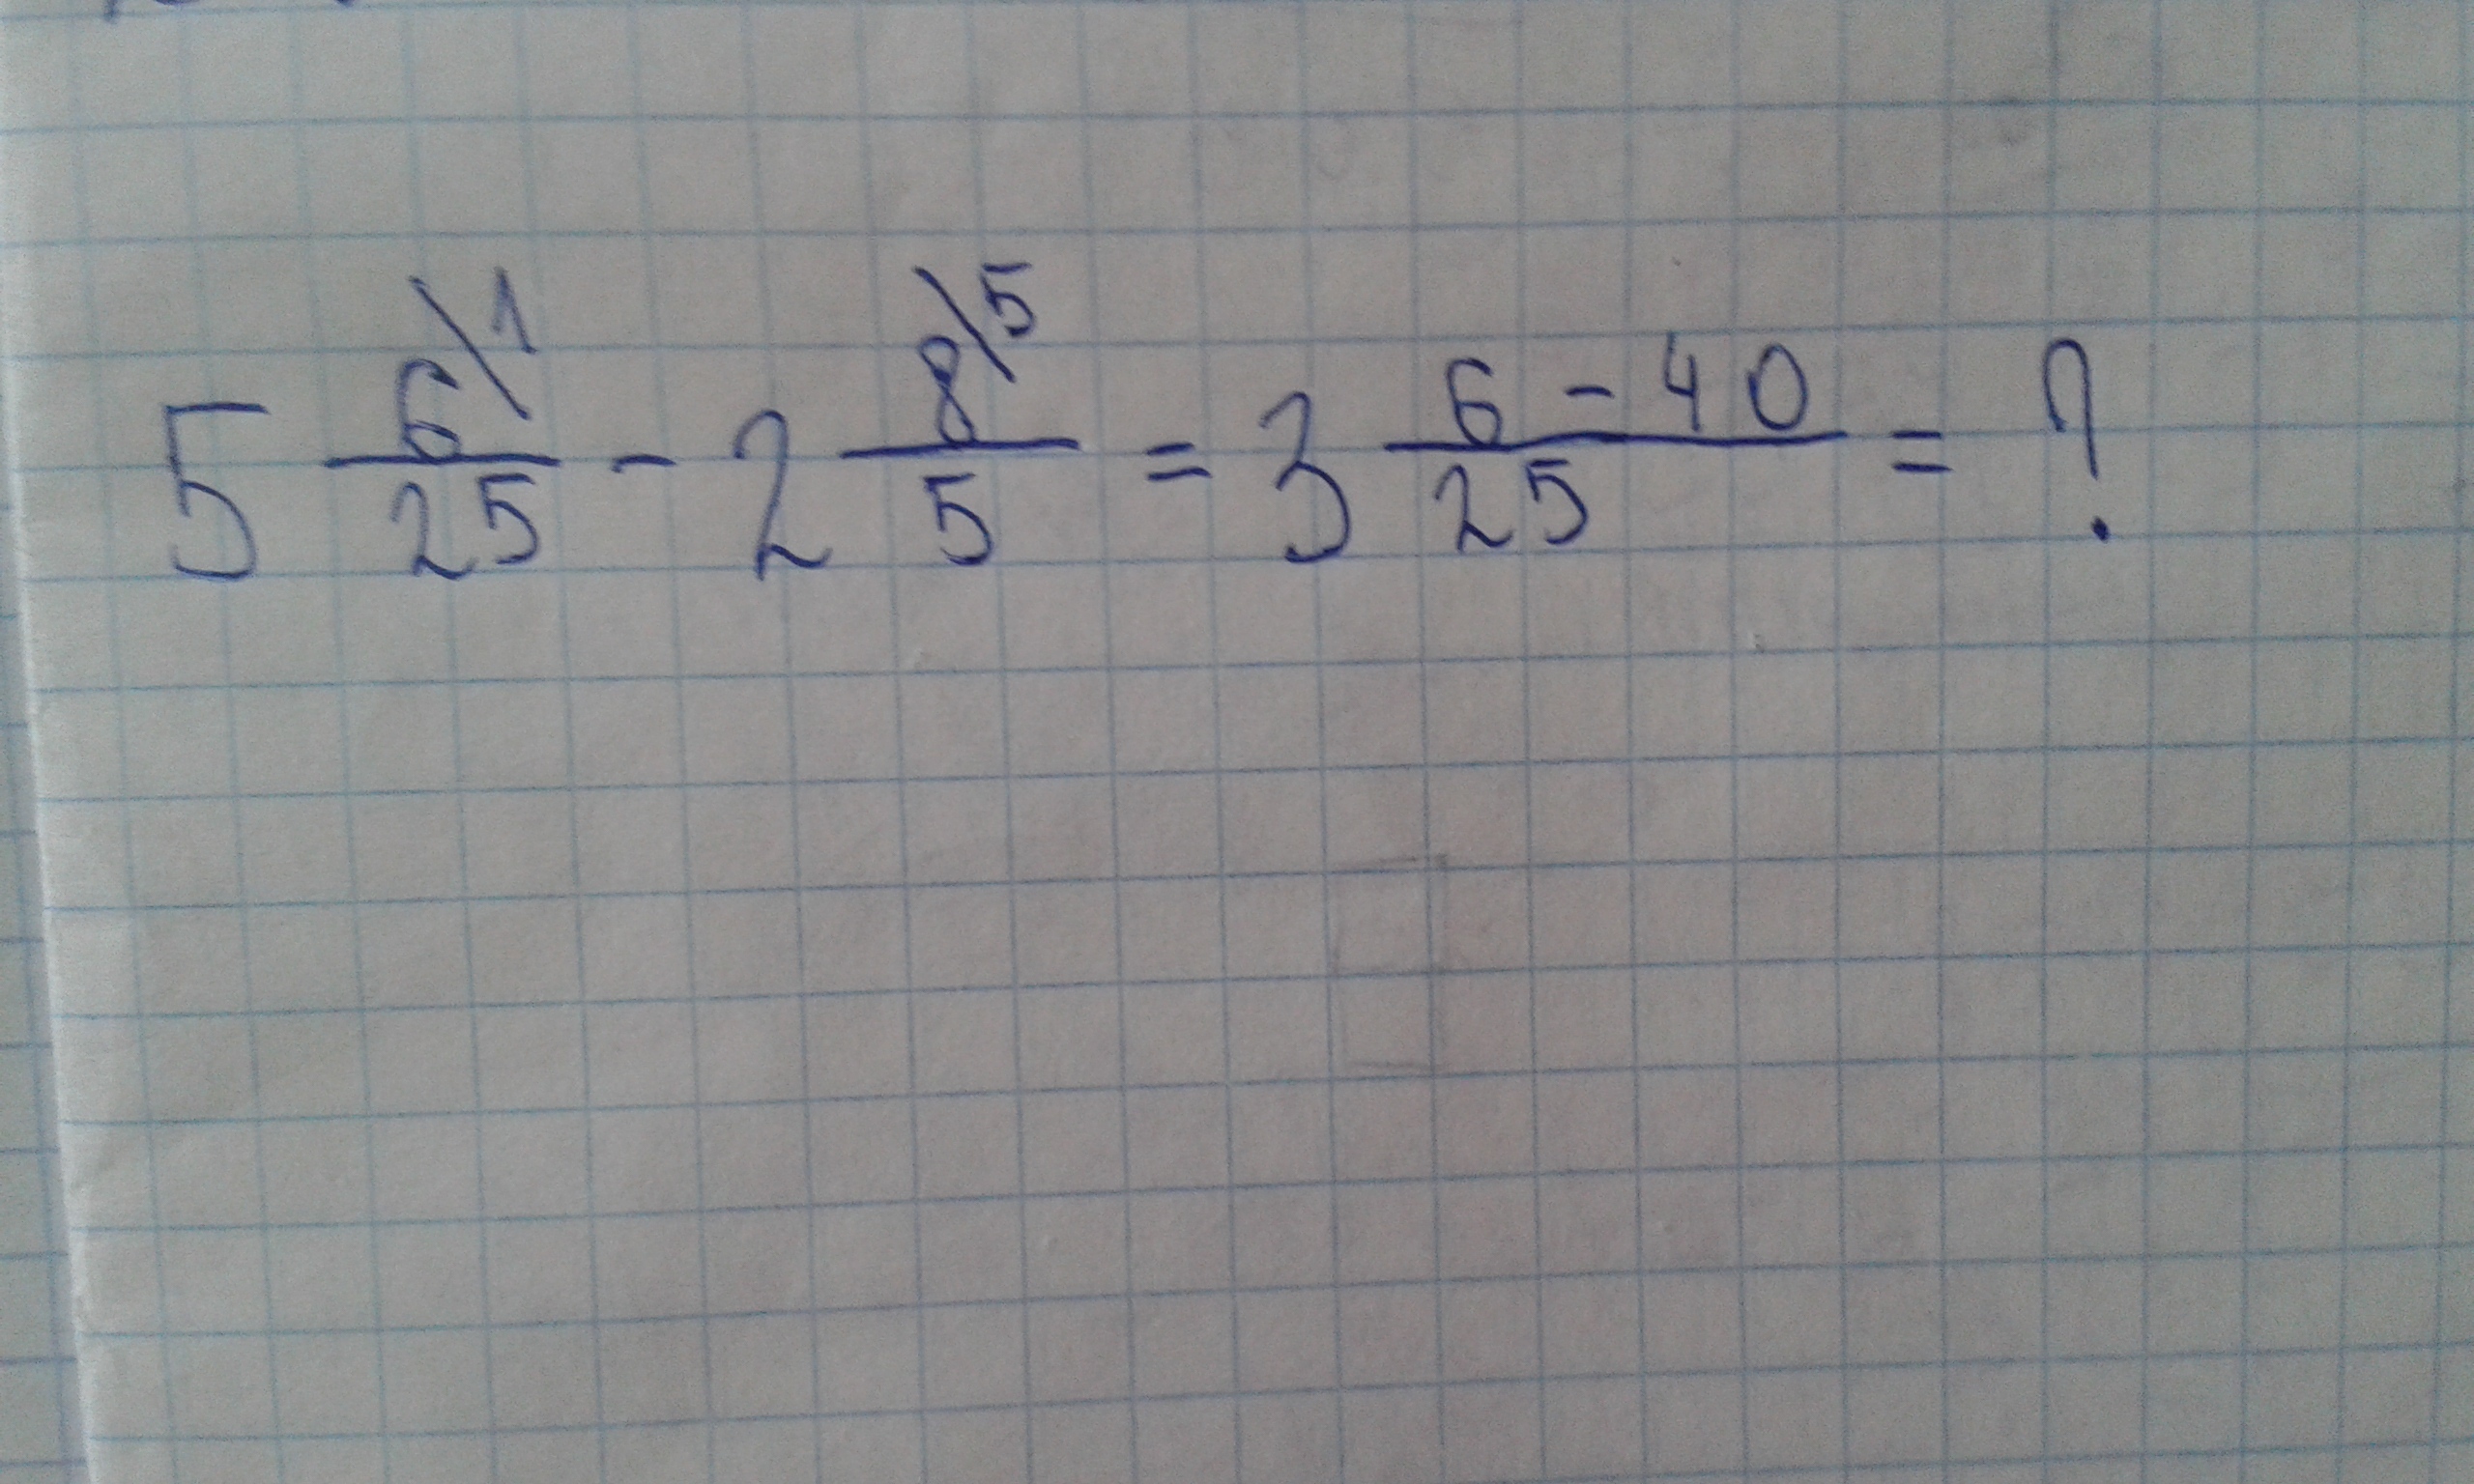 5 6\1/25 - 2 8\5/5 = 3 6-40/25 = ?